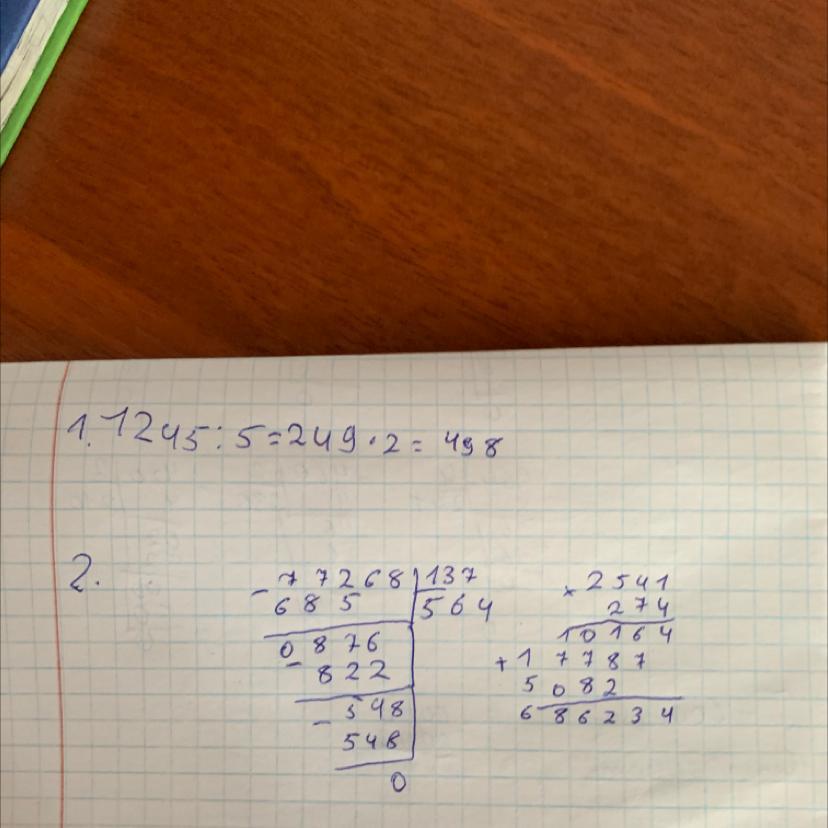 1. 1245:5=249·2=498
2.
- 77268 | 137
685 | 564
0876
- 822
- 548
548
0
× 2541
274
10164
+ 17787
5082
686234